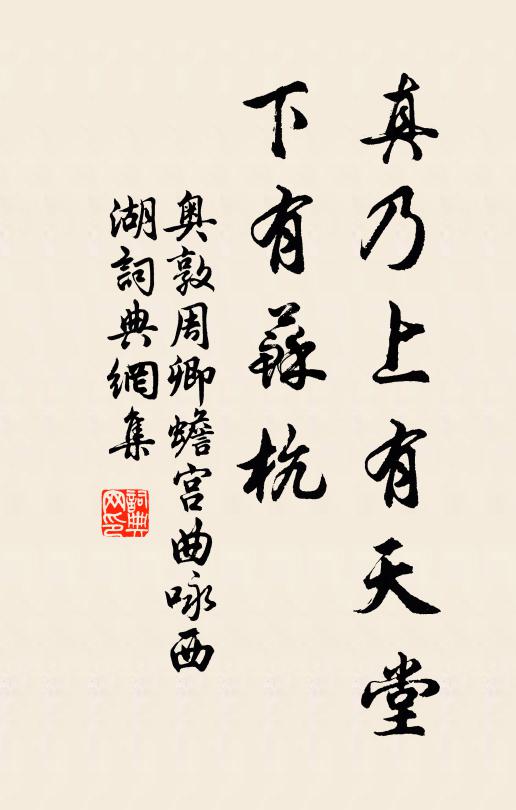 真乃上有天堂
下有蘇杭
奥敦周卿蟾宫曲咏西
湖詞典網集
詞典
网印